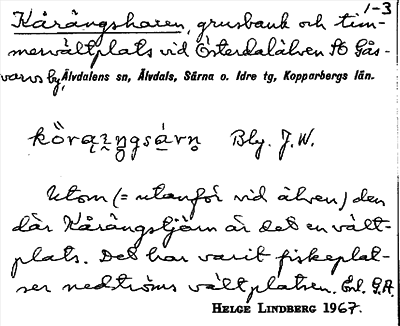 1-3
Kårängsharen, grusbank och tim-
mervältplats vid Österdalälven SO Gås-
varvs by, Älvdalens sn, Älvdals, Särna o. Idre tg, Kopparbergs län.
Bly. J.W.
Utom (= utanför vid älven) den
där Kårängstjärn är det en vält-
plats. Det har varit fiskeplat-
ser nedströms vältplatsen. Enl. G.A.
HELGE LINDBERG 1967.